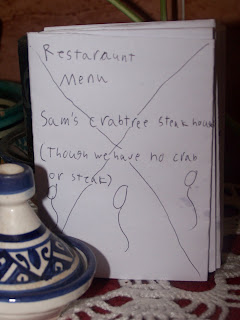 Restaraunt
Menu
Sam's crabtree steak house
(Though we have no crab
or steak)